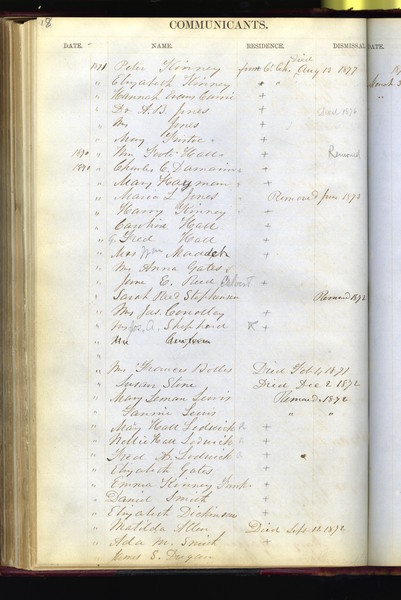 18
COMMUNICANTS.
DATE. NAME. RESIDENCE. DISMISSAL DATE.
1871 Peter Kinney Died Aug 12 1877
" Elizabeth Kinney " "
" Hannah Evans +
" Dr A. B. Jones + Died 1876
" Mrs Jones +
" May +
1870 Mrs Hall + Removed
1870 Charles C. +
" Mary Hayman +
" Maria L Jones Removed June 1873
" Harry Kinney +
" Caroline Hall +
" Fred Hall +
" Mrs Wm Maddock +
" Mrs Anna Gates
" Jane E. Reed +
" Sarah Reed Stephenson Removed 1872
" Mrs Jas. Conolley +
" Mrs Jos. A. Shepherd +
" Mrs
" Mrs Frances Bolles Died Feb 4 1871
" Susan Stone Died Dec 2 1872
" Mary Leman Lewis Removed 1872
" Fannie Lewis " "
" May Hall Lodwick +
" Nellie Hall Lodwick +
" Fred A. Lodwick +
" Elizabeth Gates +
" Emma Kinney +
" Daniel Smith +
" Elizabeth Dickinson +
" Matilda Allen Died Sept. 11. 1872
" Ada M. Smith +
James S. Dugan